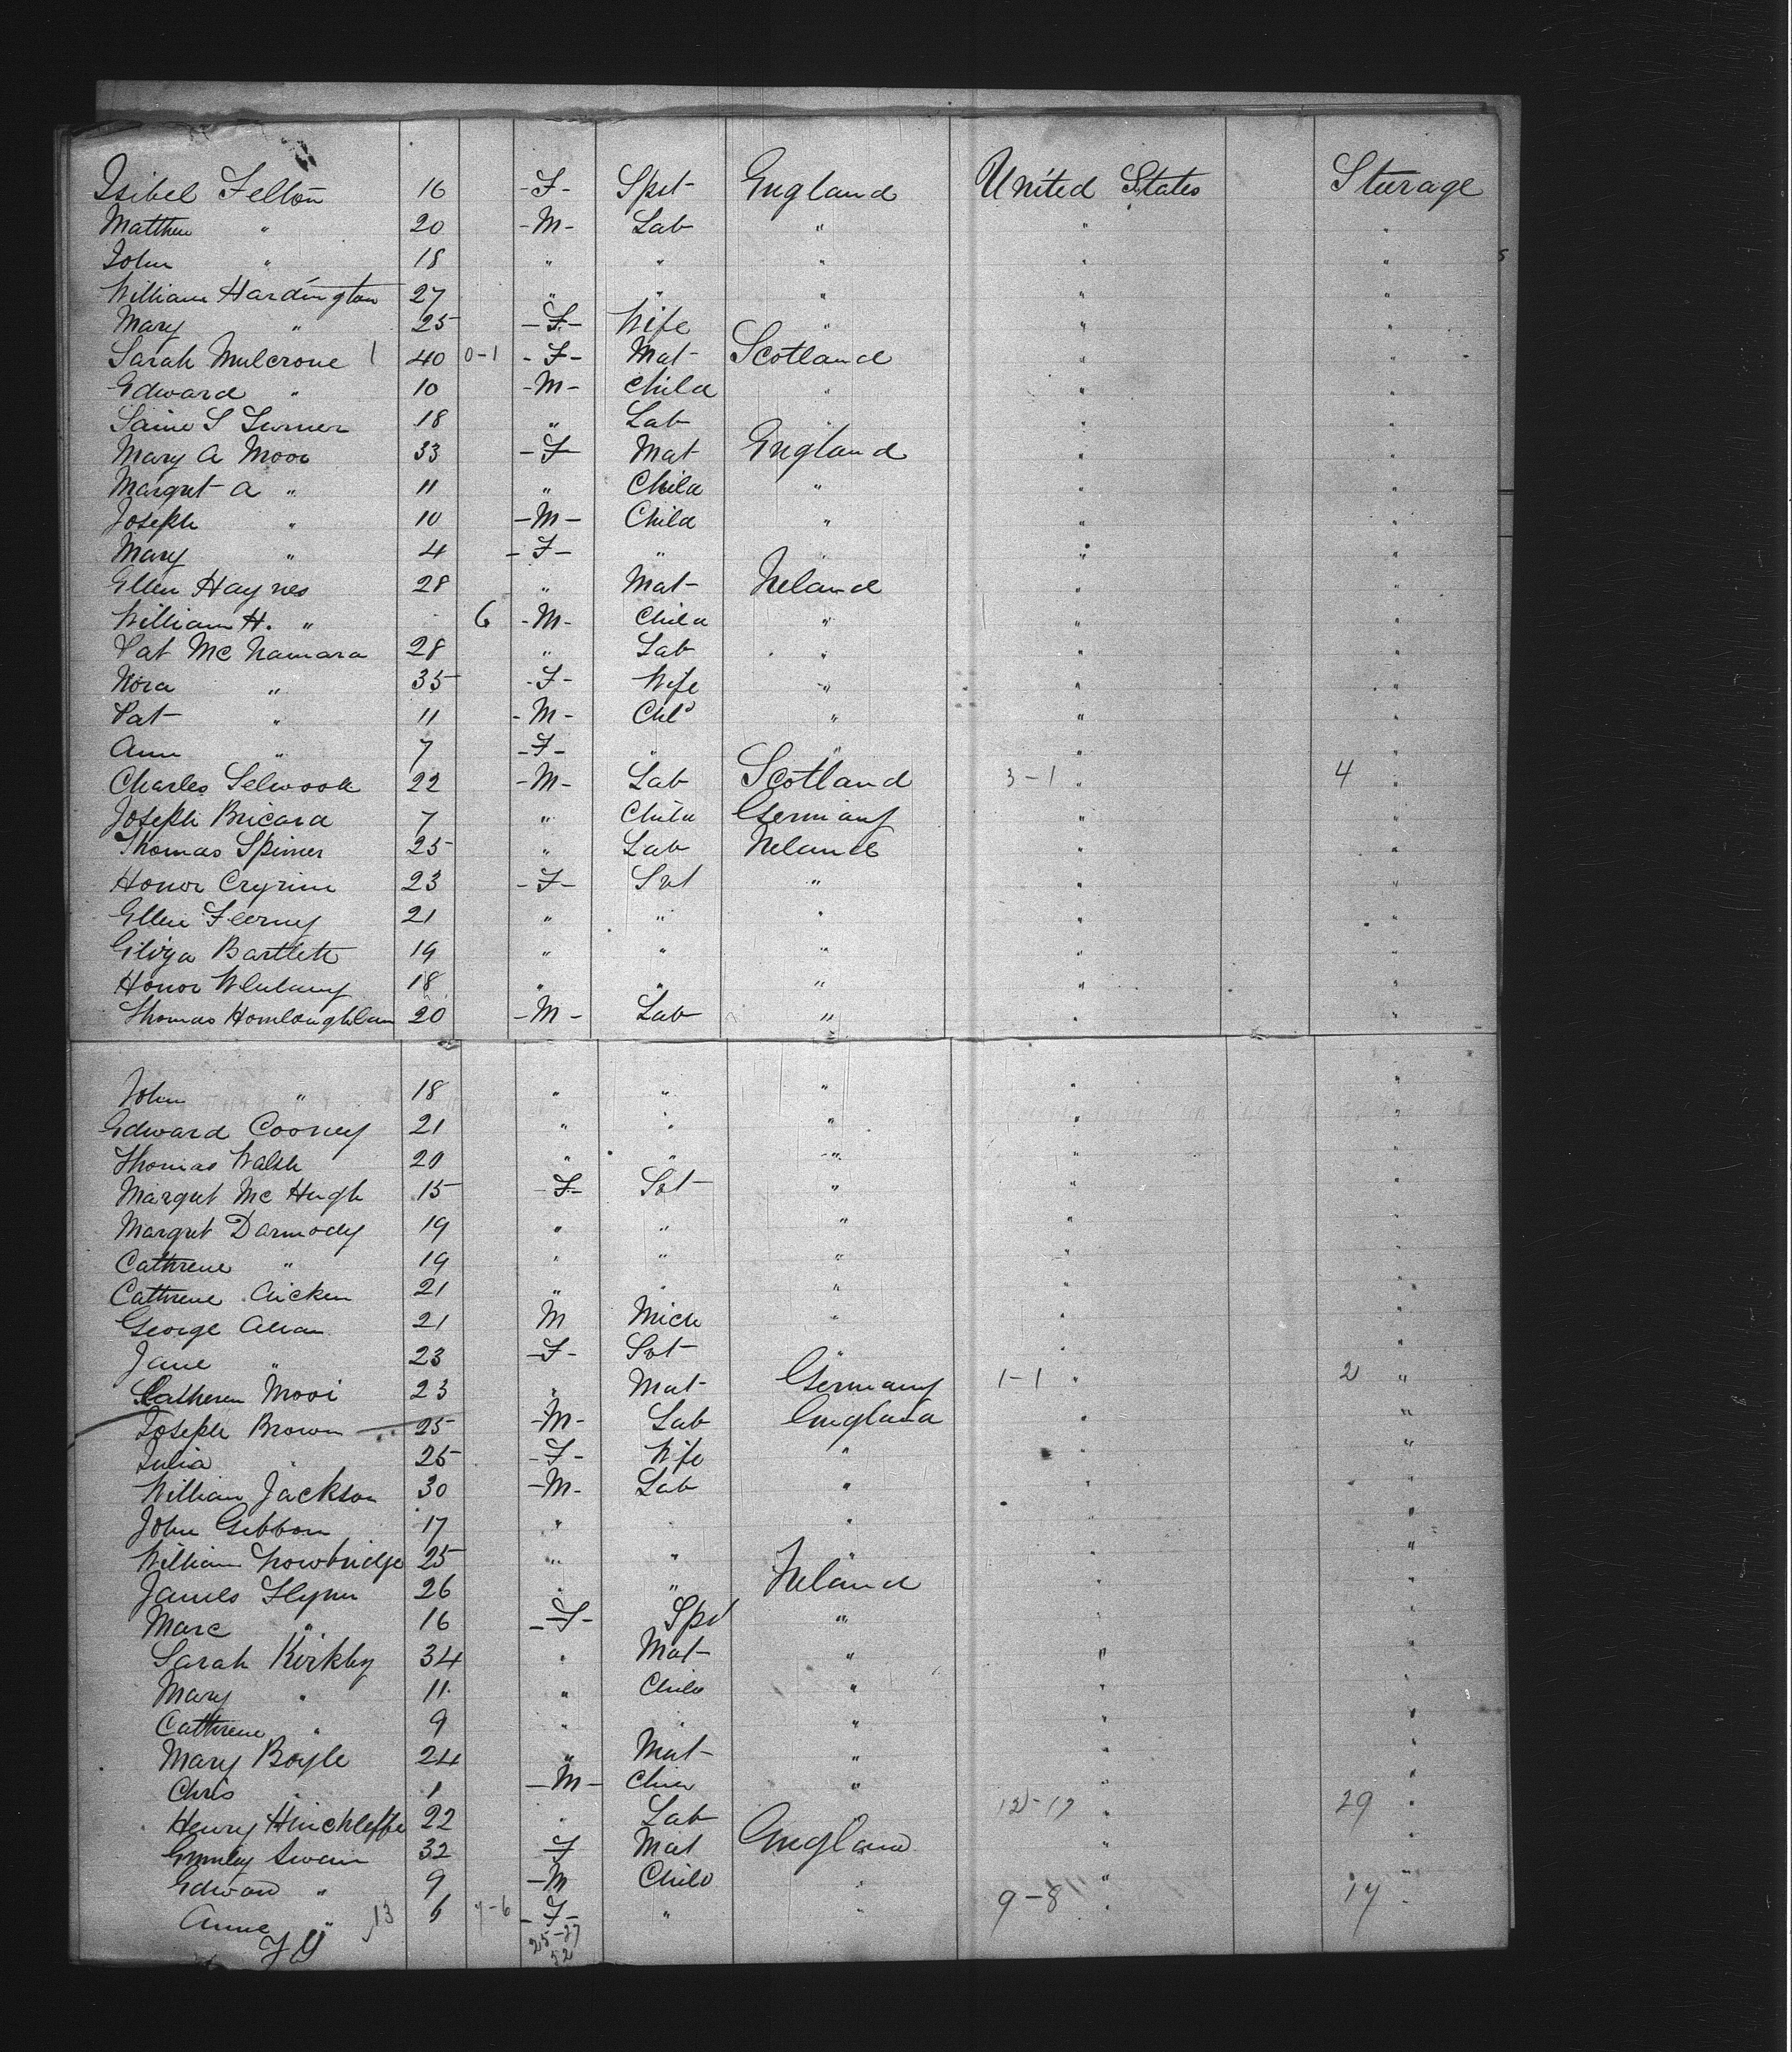 Isibel Felton 16 -F- Spst England United States Sturage
Matthew " 20 -M- Lab " " "
John " 18 " " " " "
William Hardington 27 " " " " "
Mary " 25 -F- Wife " " "
Sarah Mulcrone 1 40 0-1 -F- Mat Scotland " "
Edward " 10 -M- Child " " "
18 " Lab " " "
Mary A Moor 33 -F Mat England " "
Margret A " 11 " Child " " "
Joseph " 10 -M- Child " " "
Mary " 4 -F- " " " "
Ellen Haynes 28 " Mat Ireland " "
William H. " 6 -M- Child " " "
Pat McNamara 28 " Lab " " "
Nora " 35 -F- Wife " " "
Pat " 11 -M- Chld " " "
Ann " 7 -F- " " " "
Charles 22 -M- Lab Scotland 3-1 " 4 "
Joseph Bricard 7 " Child Germany " "
Thomas 25 " Lab Ireland " "
Honor 23 -F- Svt " " "
Ellen 21 " " " " "
Bartlett 19 " " " " "
Honor 18 " " " " "
Thomas 20 -M- Lab " " "
John " 18 " " " " "
Edward Cooney 21 " " " " "
Thomas Walsh 20 " " " " "
Margret McHugh 15 -F- Svt " " "
Margret Darmody 19 " " " " "
Cathrene " 19 " " " " "
Cathrene Aicken 21 " " " " "
George 21 M Mich " " "
Jane " 23 -F- Svt " " "
Catheren Mooi 23 " Mat Germany 1-1 " 2 "
Joseph Brown 25 -M- Lab England " "
Julia " 25 -F- Wife " " "
William Jackson 30 -M- Lab " " "
John Gibbon 17 " " " " "
William Trowbridge 25 " " " " "
James Flynn 26 " " Ireland " "
Marc " 16 -F- Spst " " "
Sarah Kirkby 34 " Mat " " "
Mary " 11 " Child " " "
Cathrene " 9 " " " " "
Mary Boyle 24 " Mat " " "
Chris " 1 -M- Child " " "
Henry Hinchleffe 22 " Lab " 12-17 " 29 "
Swain 32 F Mat England " "
Edward " 9 -M Child " " "
Anne " 13 6 -F- " " 9-8 " 17 "
25-27
52